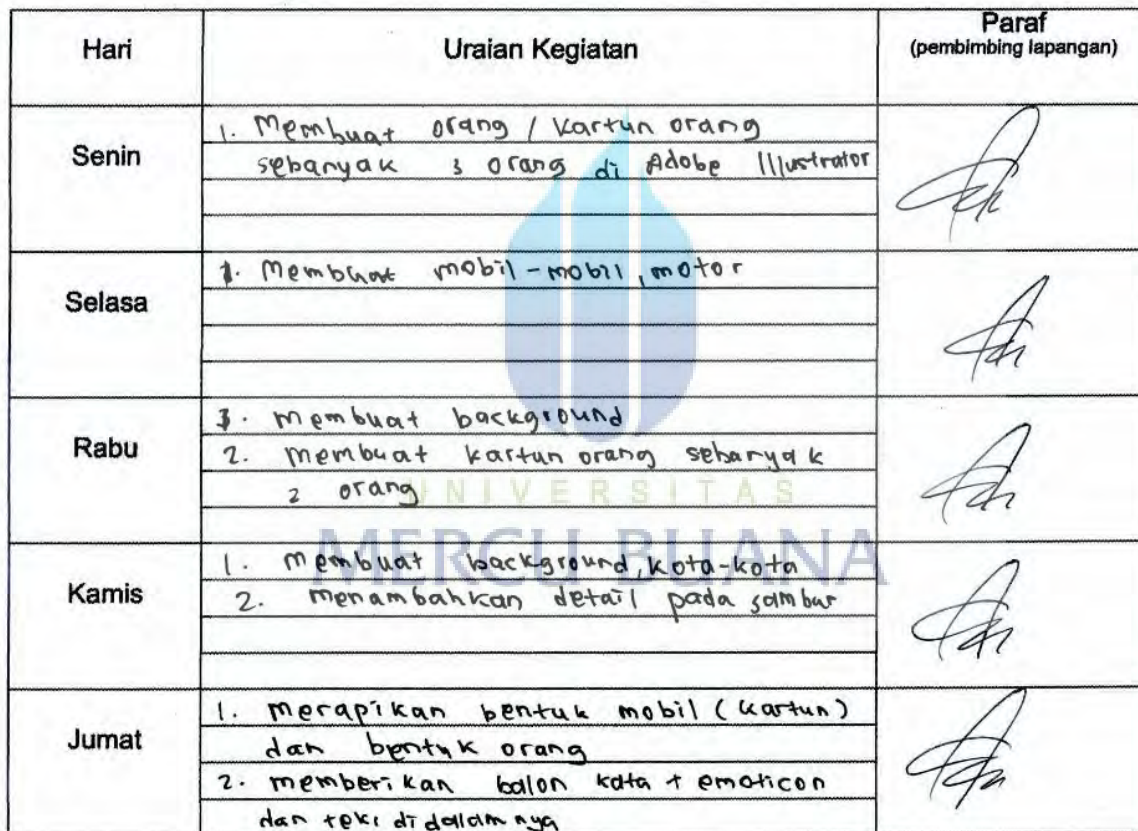 Hari Uraian Kegiatan Paraf
(pembimbing lapangan)
Senin
1. Membuat orang / kartun orang
sebanyak 3 orang di Adobe Illustrator
Selasa
1. Membuat mobil-mobil, motor
Rabu
1. Membuat background
2. Membuat kartun orang sebanyak
2 orang
UNIVERSITAS
MERCU BUANA
Kamis
1. membuat background, kota-kota
2. menambahkan detail pada gambar
Jumat
1. merapikan bentuk mobil (kartun)
dan bentuk orang
2. memberikan balon kata + emoticon
dan teks di dalamnya